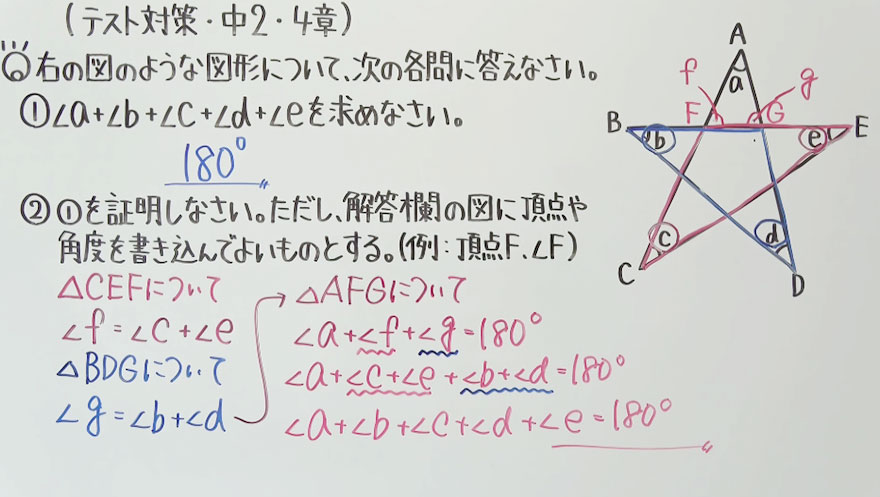 (テスト対策・中2・4章)
右の図のような図形について、次の各問に答えなさい。
①∠a+∠b+∠c+∠d+∠eを求めなさい。
180°
②①を証明しなさい。ただし、解答欄の図に頂点や
角度を書き込んでよいものとする。(例:頂点F、∠F)
△CEFについて
∠f=∠c+∠e
△BDGについて
∠g=∠b+∠d
△AFGについて
∠a+∠f+∠g=180°
∠a+∠c+∠e+∠b+∠d=180°
∠a+∠b+∠c+∠d+∠e=180°
A
f
a
g
B
F
G
E
b
e
c
d
C
D